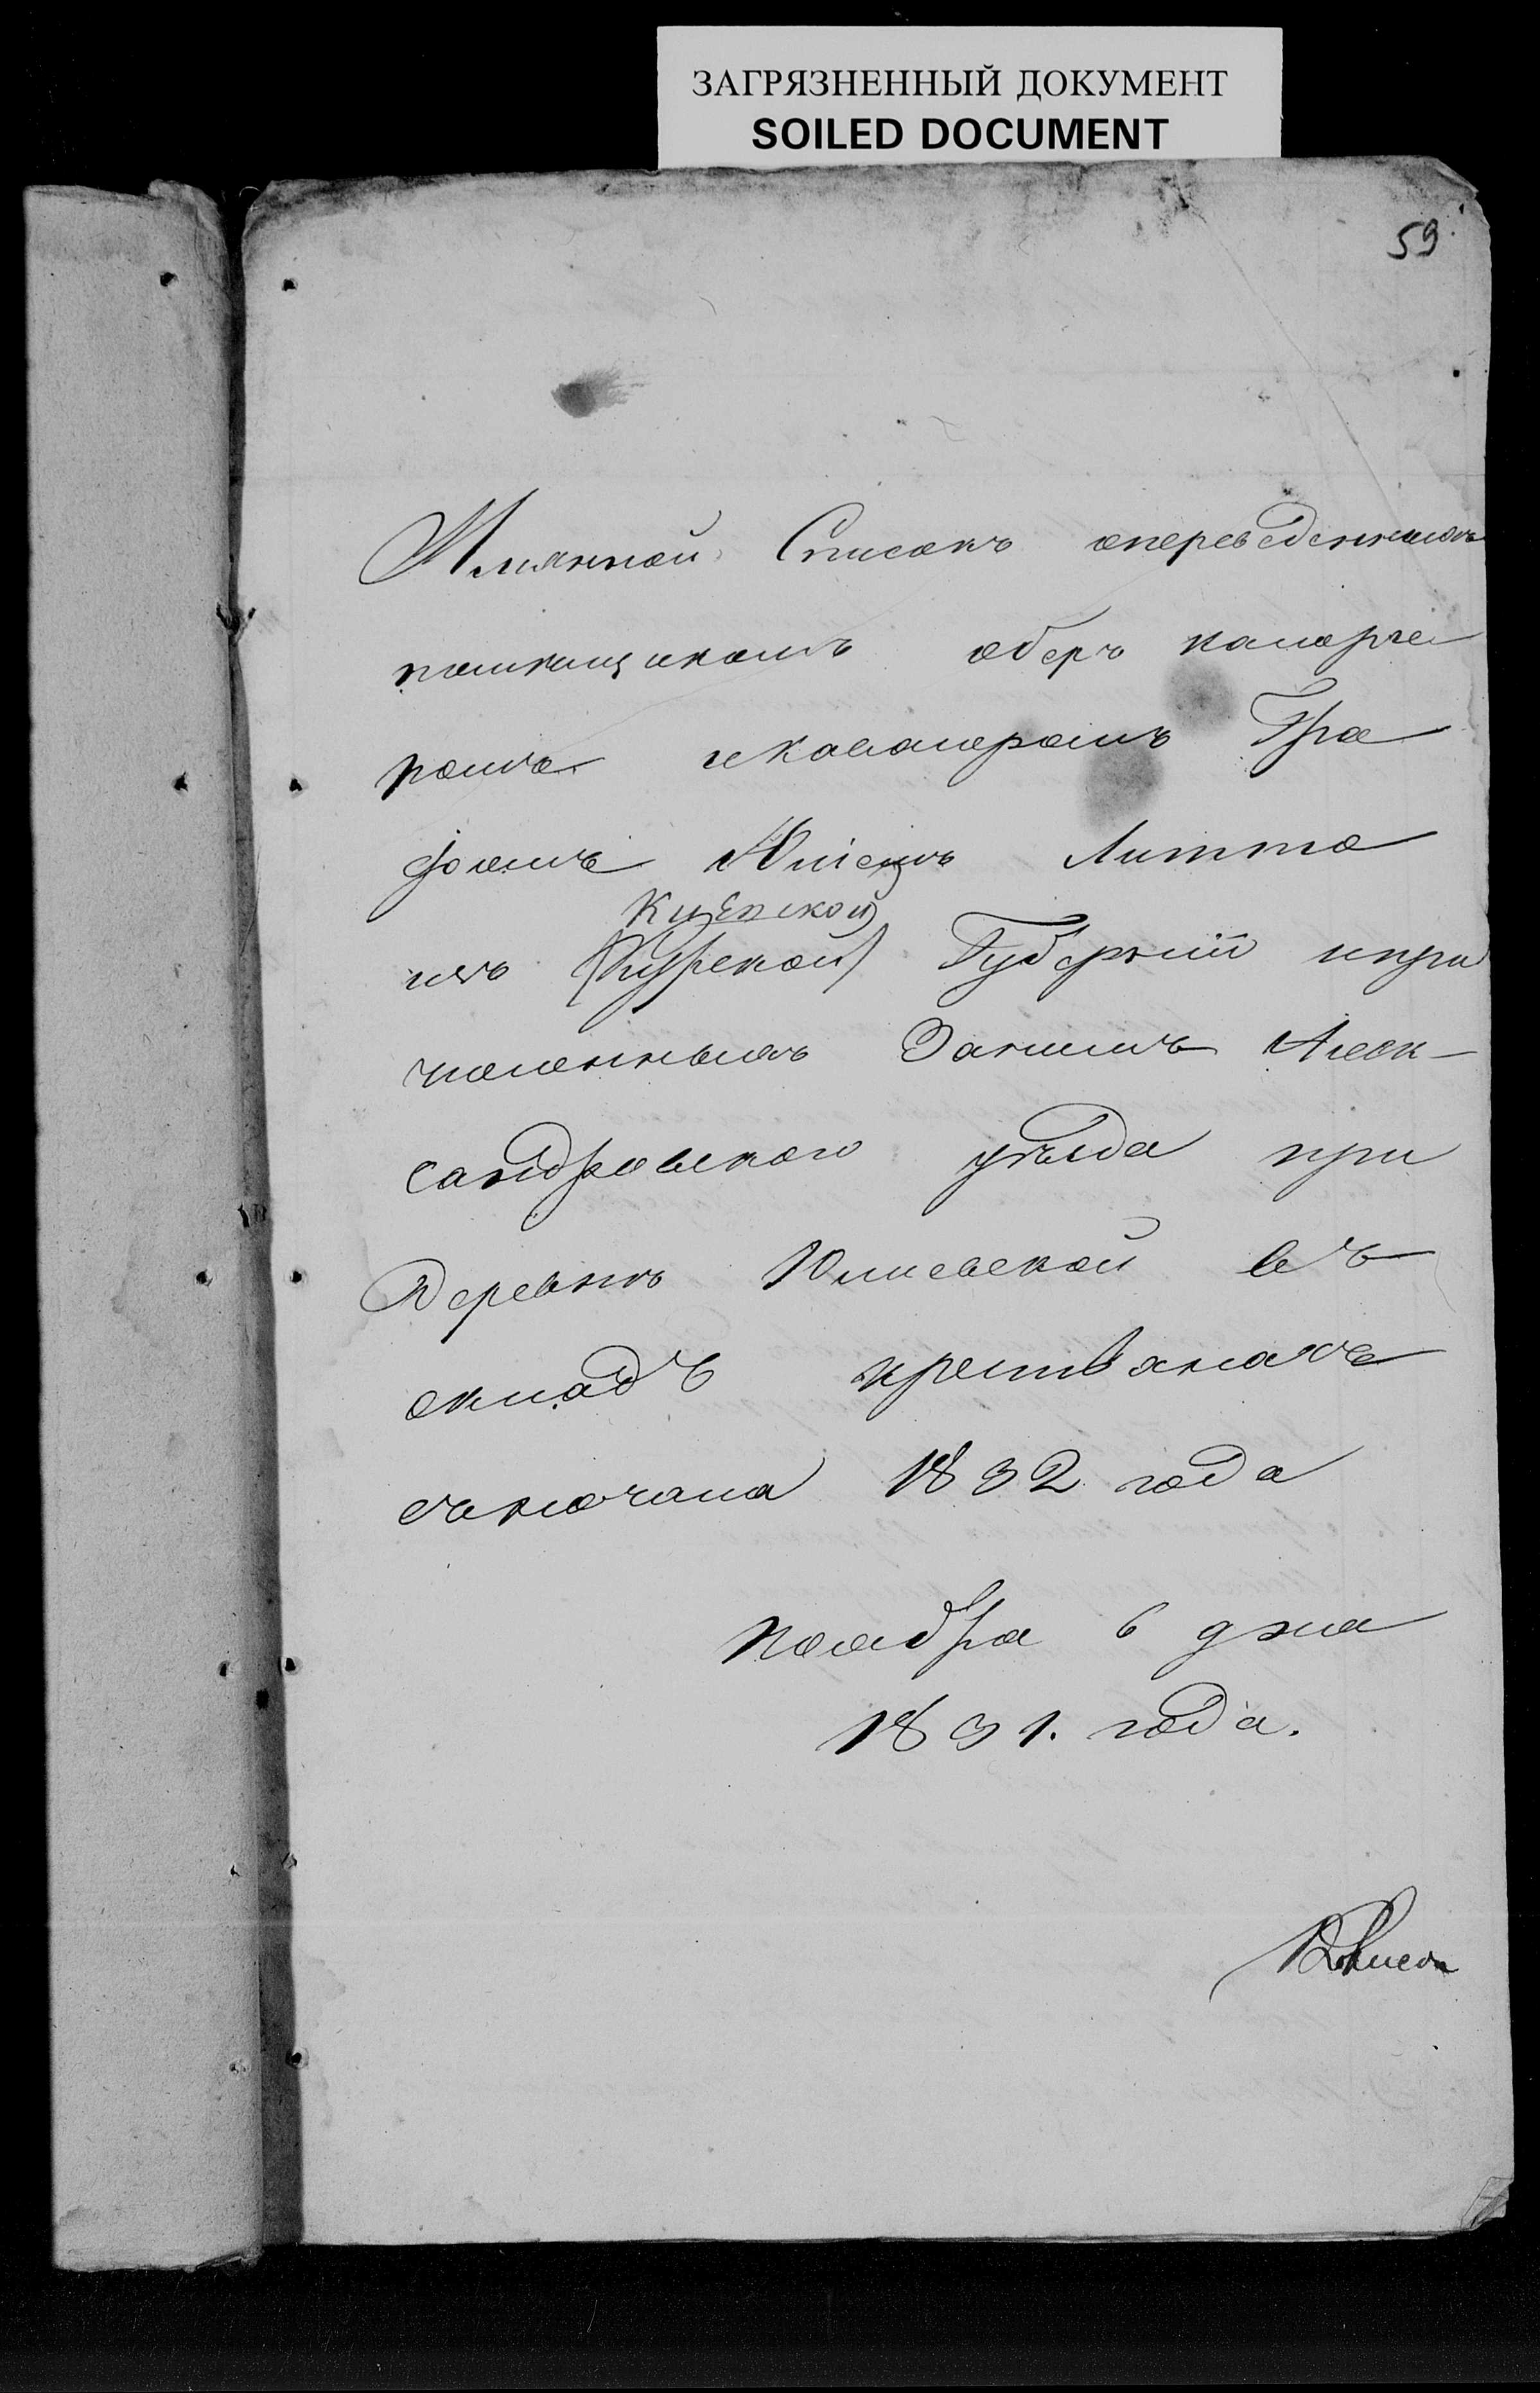 ЗАГРЯЗНЕННЫЙ ДОКУМЕНТ
SOILED DOCUMENT
59
Имянной Списокъ опереведенныхъ
помещикомъ оберъ камерге
ромъ икавалеромъ Гра
фомъ Юліемъ Литта
Кіевской
изъ (Курской) Губерніи ипри
численныхъ Занимъ Алек-
сандровского уезда при
Деревне Юлиевской въ
окладъ крестьянахъ
съначала 1832 года
ноября 6 дня
1831. года.